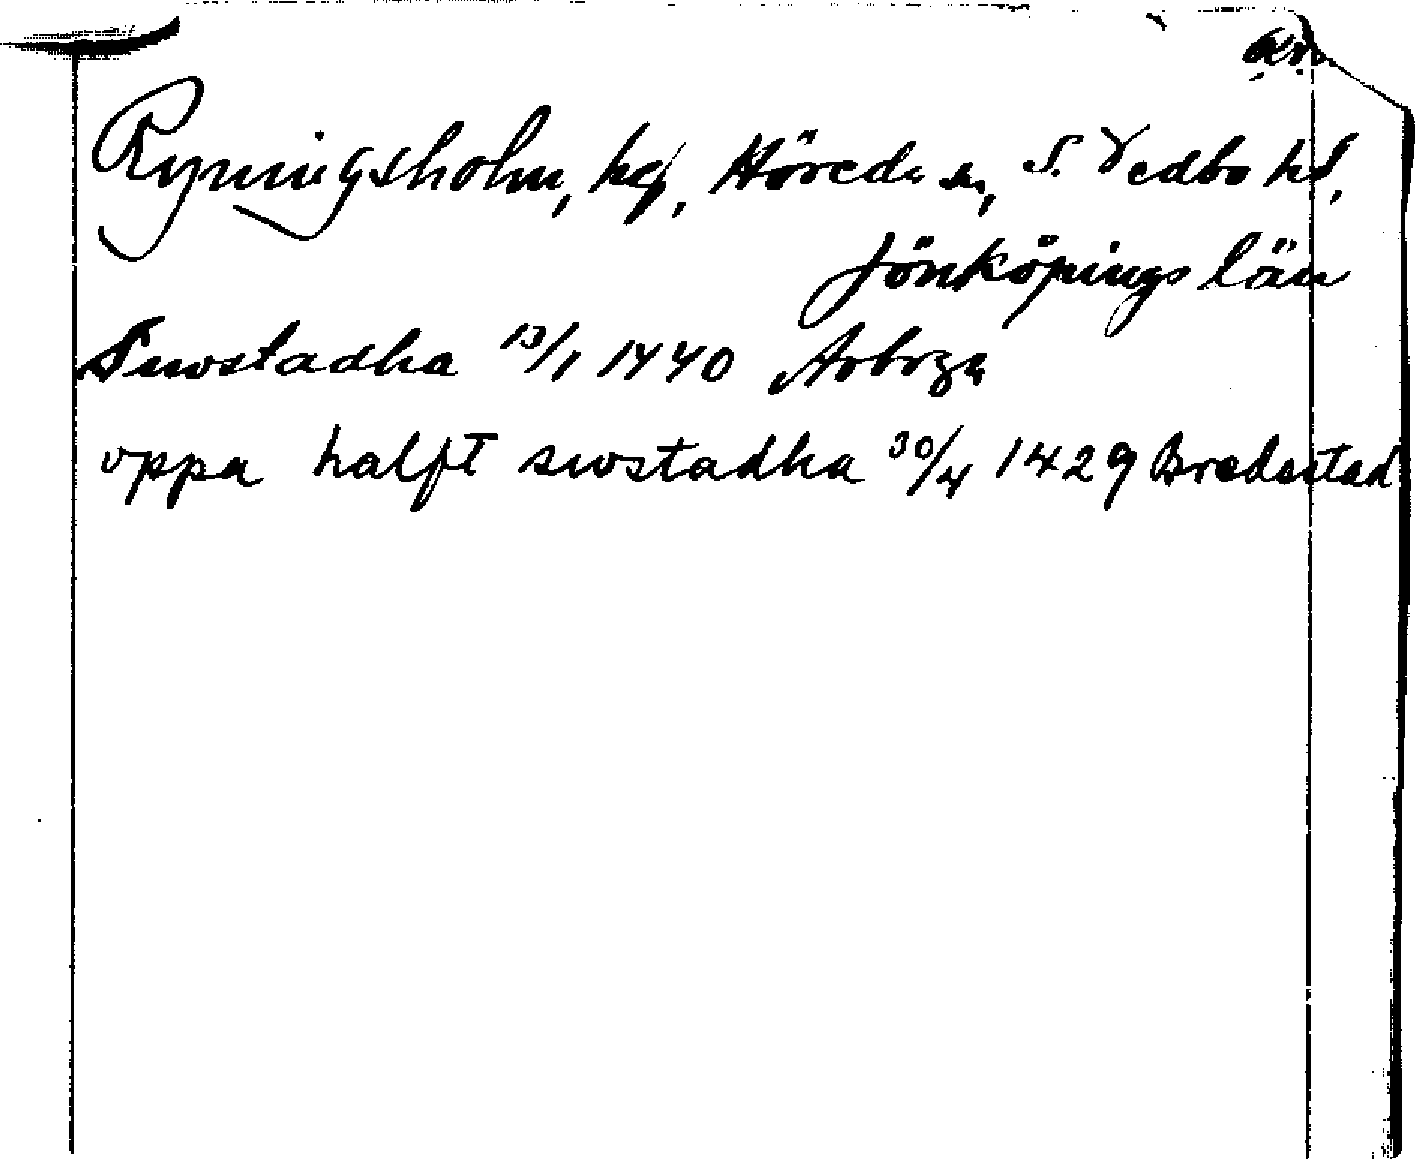 Ryningsholm, hg, Höreda sn, S. Vedbo hd,
Jönköpings län
Suostadha 13/1 1440 Arboga
oppa halft swstadha 30/4 1429 Bredestad